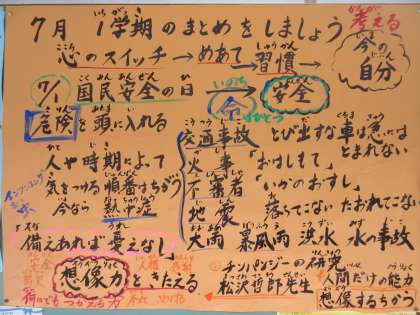 7月 1学期のまとめをしましょう 考える
心のスイッチ→めあて→習慣→ 今の自分
7/1 国民安全の日 → 安全
命
危険を頭に入れる
人や時期によって
気をつける順番はちがう
今なら 熱中症
備えあれば憂えなし
想像力をきたえる
交通事故 とび出すな車は急にはとまれない
火事 「おはしもて」
不審者 「いかのおすし」
地震 落ちてこない たおれてこない
大雨 暴風雨 洪水 水の事故
チンパンジーの研究
松沢哲郎先生
人間だけの能力
想像するちから